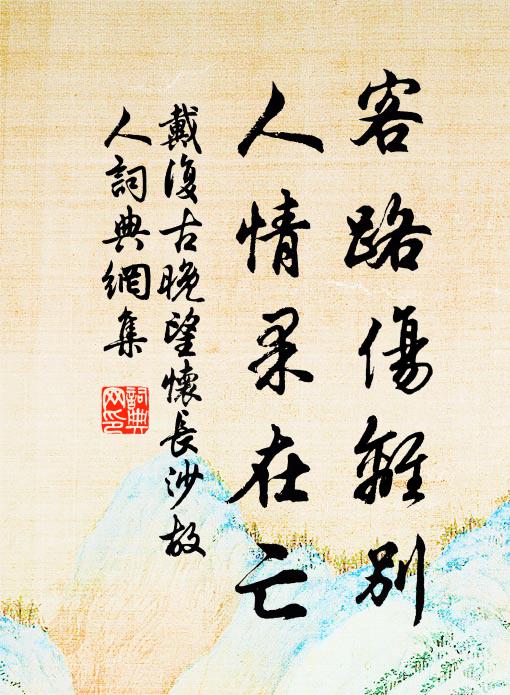 客路傷離別
人情累在亡
戴復古晚望懷長沙故
人詞典網集
詞典
网印